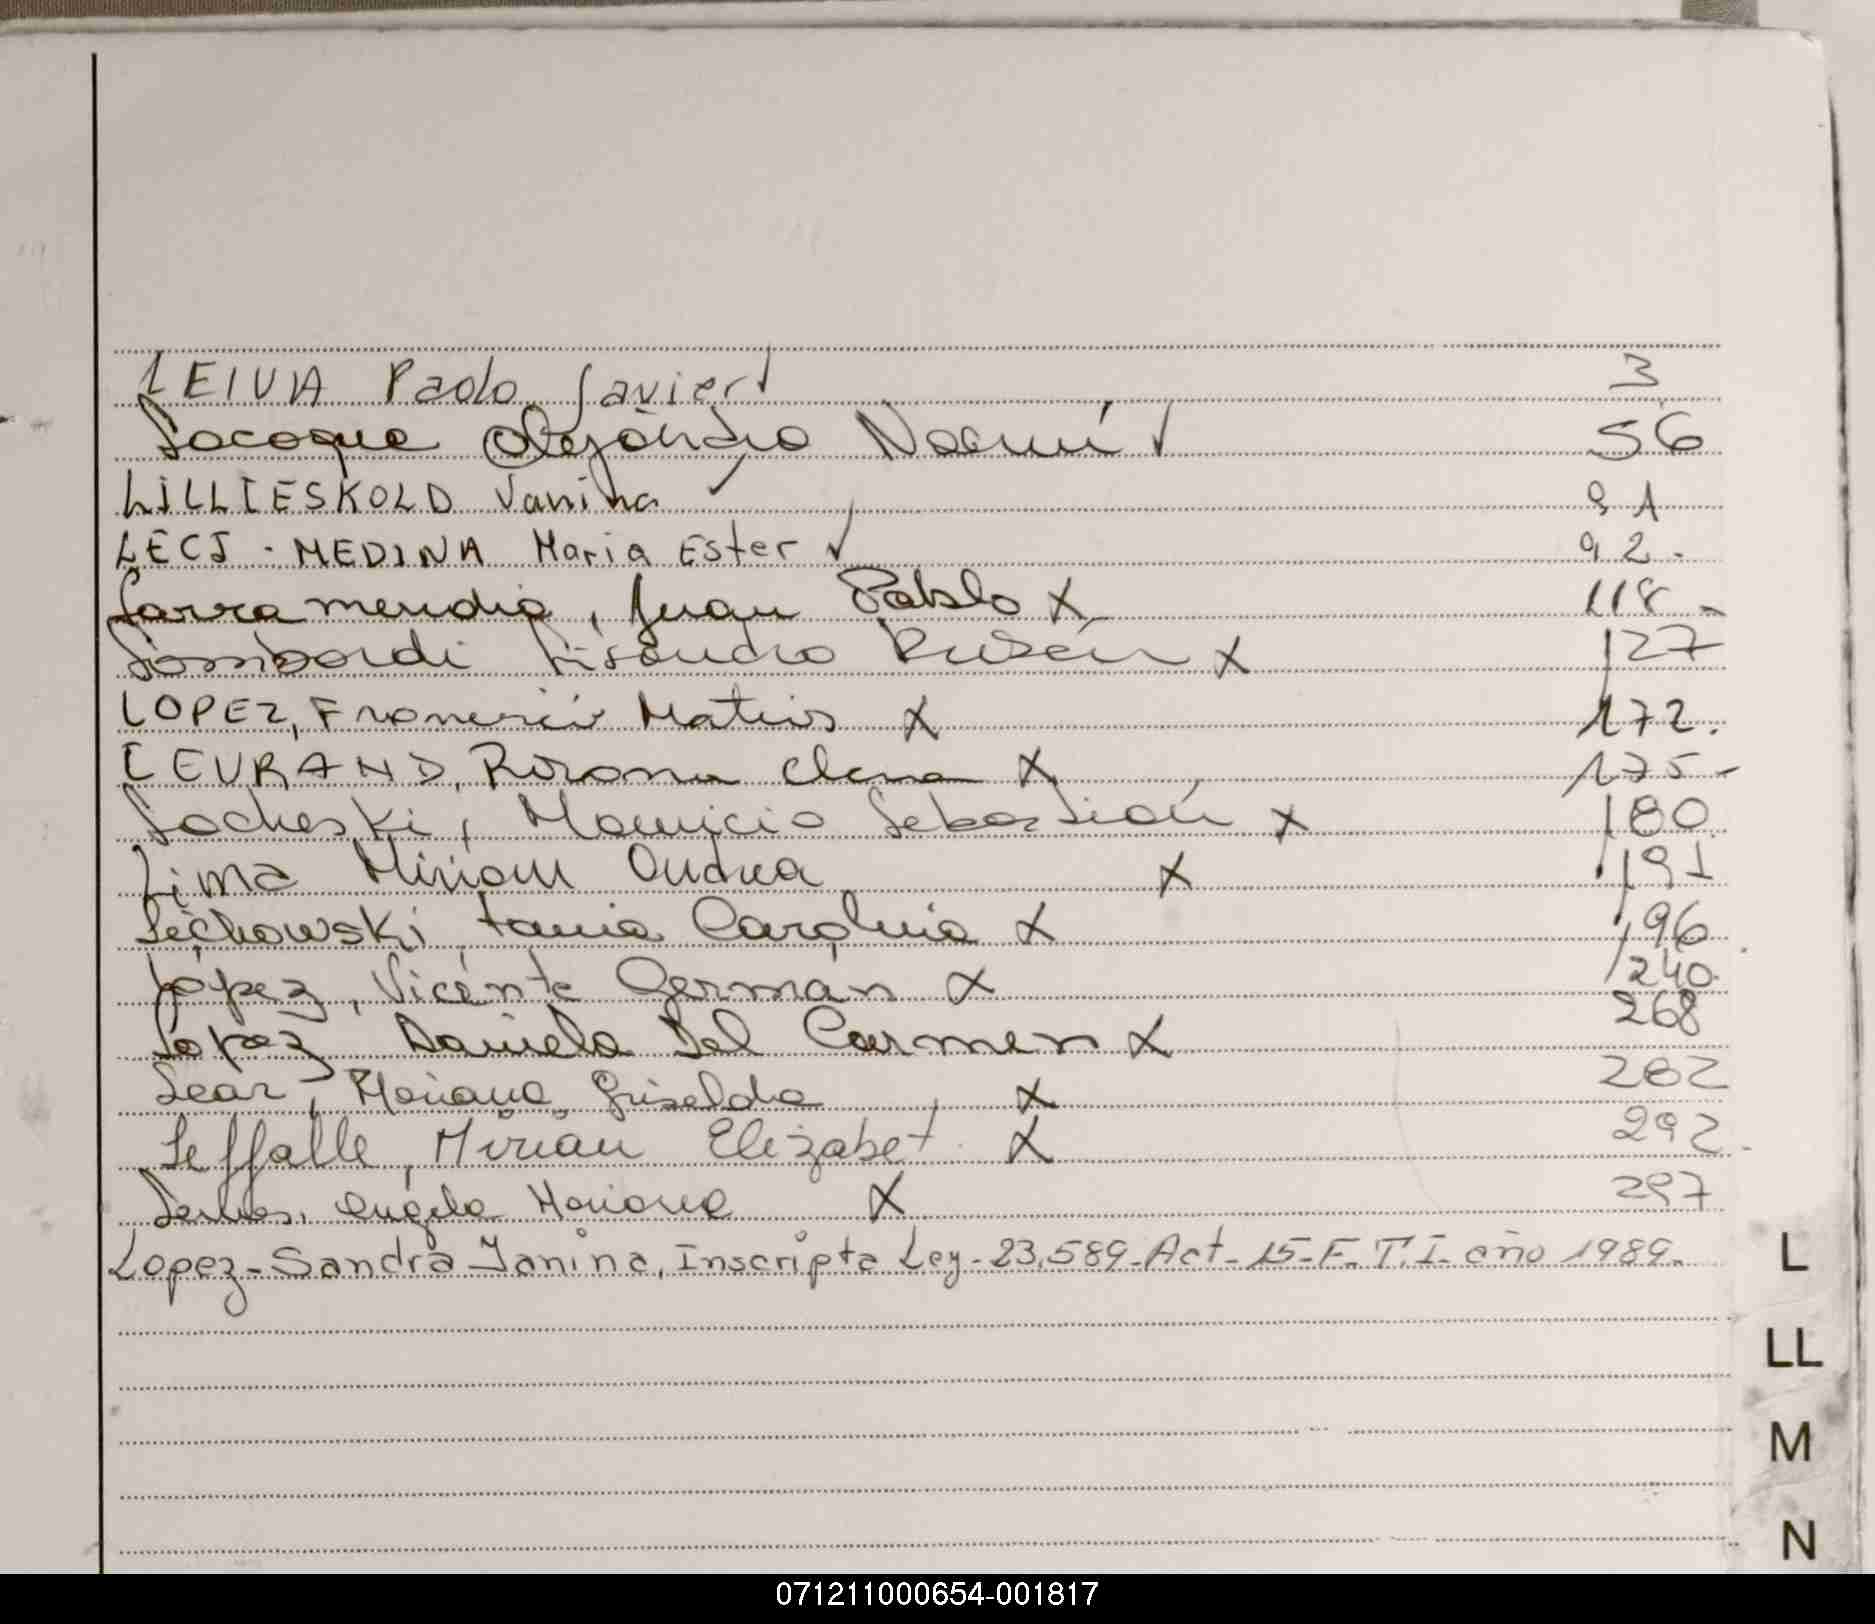 LEIVA Paolo Javier ✓ 3
Lacoque Alejandra Noemí ✓ 56
LILLIESKOLD Vanina ✓ 91
LECJ - MEDINA Maria Ester ✓ 92.-
Larramendia, Juan Pablo X 118.-
Lombardi Lisandro Rubén X 127
LOPEZ, Matias X 172.
LEURAND, Elena X 175.-
Locheski, Mauricio Sebastián X 180
Lima Miriam Andrea X 191
Lechowski, Tania Carolina X 196
Lopez, Vicente German X 240.
Lopez Daniela Del Carmen X 268
Lear, Mariana Griselda X 282
Leffalle, Mirian Elizabet X 292.-
Angela Mariana X 297
Lopez-Sandra Janina, Inscripta Ley-23.589-Act-15-F.T.I-año 1989.-
L
LL
M
N
071211000654-001817